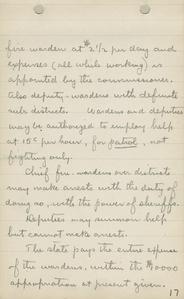 fire warden at $2 1/2 per day and
expenses (all while working) is
appointed by the commissioner.
Also deputy-wardens with definite
sub districts. Wardens and deputies
may be authorized to employ help
at 15¢ per hour, for patrol, not
fighting only.
Chief fire-wardens over districts
may make arrests with the duty of
doing so, with the power of sheriffs.
Deputies may summon help
but cannot make arrests.
The state pays the entire expense
of the wardens, within the $10000
appropriation at present given.
17